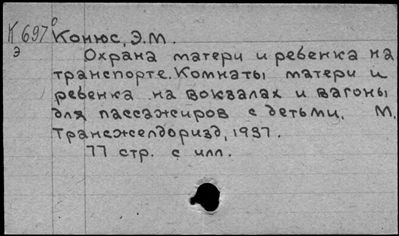 К 697⁰ Конюс, Э.М.
Э
Охрана матери и ребенка на
транспорте. Комнаты матери и
ребенка на вокзалах и вагоны
для пассажиров с детьми. М.
Трансжелдоризд, 1937.
77 стр. с илл.